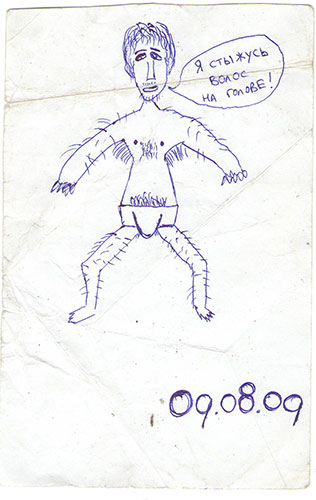 Я СТЫЖУСЬ
ВОЛОС
НА ГОЛОВЕ!
09.08.09